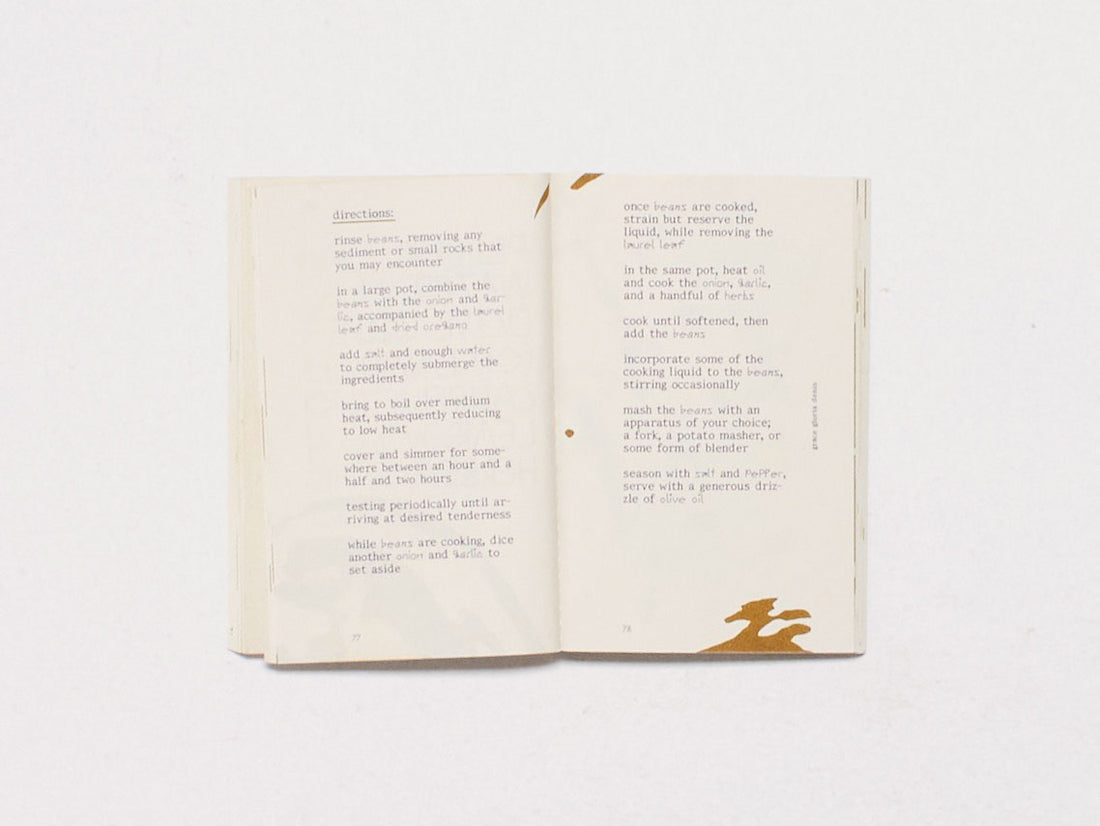 directions:
rinse beans, removing any
sediment or small rocks that
you may encounter
in a large pot, combine the
beans with the onion and gar-
lic, accompanied by the laurel
leaf and dried oregano
add salt and enough water
to completely submerge the
ingredients
bring to boil over medium
heat, subsequently reducing
to low heat
cover and simmer for some-
where between an hour and a
half and two hours
testing periodically until ar-
riving at desired tenderness
while beans are cooking, dice
another onion and garlic to
set aside
77
once beans are cooked,
strain but reserve the
liquid, while removing the
laurel leaf
in the same pot, heat oil
and cook the onion, garlic,
and a handful of herbs
cook until softened, then
add the beans
incorporate some of the
cooking liquid to the beans,
stirring occasionally
mash the beans with an
apparatus of your choice;
a fork, a potato masher, or
some form of blender
season with salt and pepper,
serve with a generous driz-
zle of olive oil
78
grace gloria